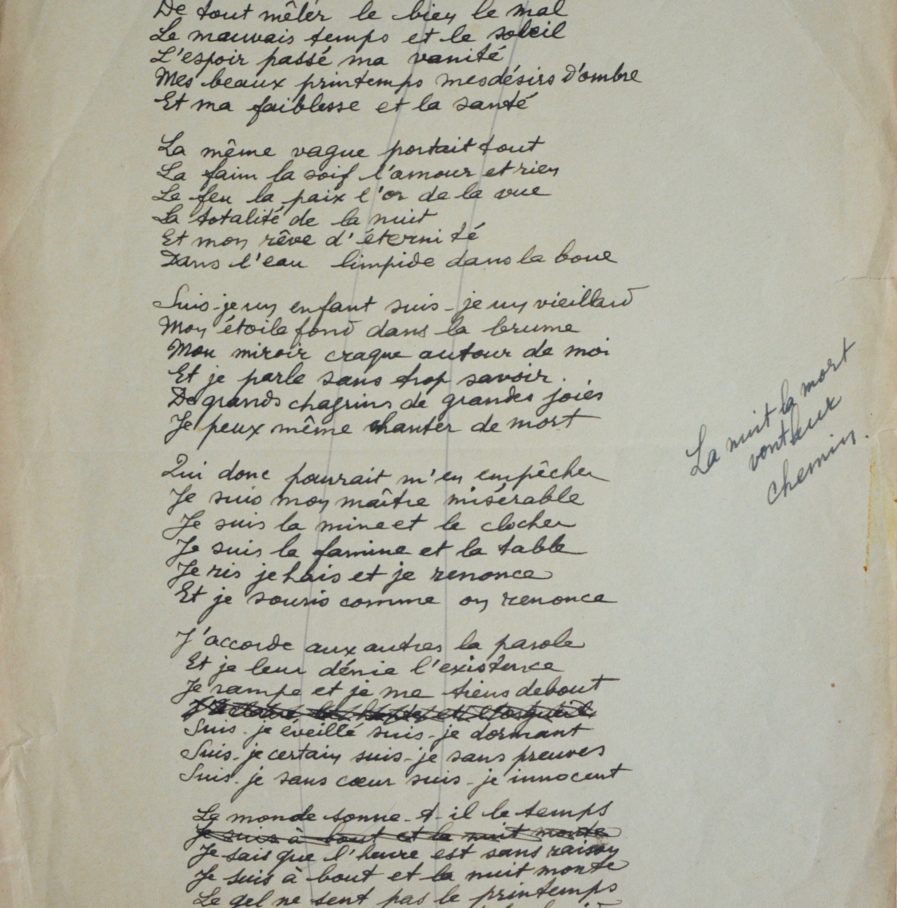 De tout mêler le bien le mal
Le mauvais temps et le soleil
L'espoir passé ma vanité
Mes beaux printemps mes désirs d'ombre
Et ma faiblesse et la santé
La même vague portait tout
La faim la soif l'amour et rien
Le feu la paix l'or de la vue
La totalité de la nuit
Et mon rêve d'éternité
Dans l'eau limpide dans la boue
Suis-je un enfant suis-je un vieillard
Mon étoile fond dans la brume
Mon miroir craque autour de moi
Et je parle sans trop savoir.
De grands chagrins de grandes joies
Je peux même chanter de mort
La nuit la mort
vont leur
chemin.
Qui donc pourrait m'en empêcher
Je suis mon maître misérable
Je suis la mine et le clocher
Je suis la famine et la table
Je ris je hais et je renonce
Et je souris comme on renonce
J'accorde aux autres la parole
Et je leur dénie l'existence
Je rampe et je me tiens debout
Suis-je éveillé suis-je dormant
Suis-je certain suis-je sans preuves
Suis-je sans cœur suis-je innocent
Le monde sonne-t-il le temps
Je suis à bout et la nuit monte
Je sais que l'heure est sans raison
Je suis à bout et la nuit monte
Le gel ne sent pas le printemps